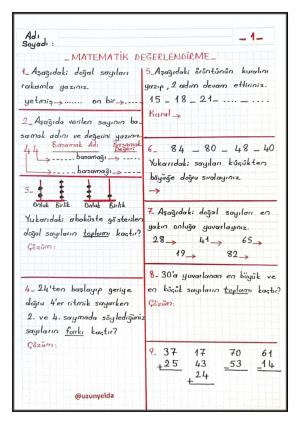 Adı
Soyadı :
- 1 -
- MATEMATİK DEĞERLENDİRME -
1- Aşağıdaki doğal sayıları
rakamla yazınız.
yetmiş → ........ on bir → ....
2- Aşağıda verilen sayının ba-
samak adını ve değerini yazınız.
Basamak Adı Basamak Değeri
44
basamağı →
basamağı →
3-
Onluk Birlik Onluk Birlik
Yukarıdaki abaküste gösterilen
doğal sayıların toplamı kaçtır?
Çözüm:
4- 24'ten başlayıp geriye
doğru 4'er ritmik sayarken
2. ve 4. sayımada söylediğiniz
sayıların farkı kaçtır?
Çözüm:
@uzunyelda
5- Aşağıdaki örüntünün kuralını
yazıp, 2 adım devam ettiriniz.
15 - 18 - 21 - .... - ....
Kural →
6- 84 - 80 - 48 - 40
Yukarıdaki sayıları küçükten
büyüğe doğru sıralayınız.
7- Aşağıdaki doğal sayıları en
yakın onluğa yuvarlayınız.
28 → 41 → 65 →
19 → 82 →
8- 30'a yuvarlanan en büyük ve
en küçük sayıların toplamı kaçtır?
Çözüm:
9- 37 17 70 61
+25 43 -53 -14
+24